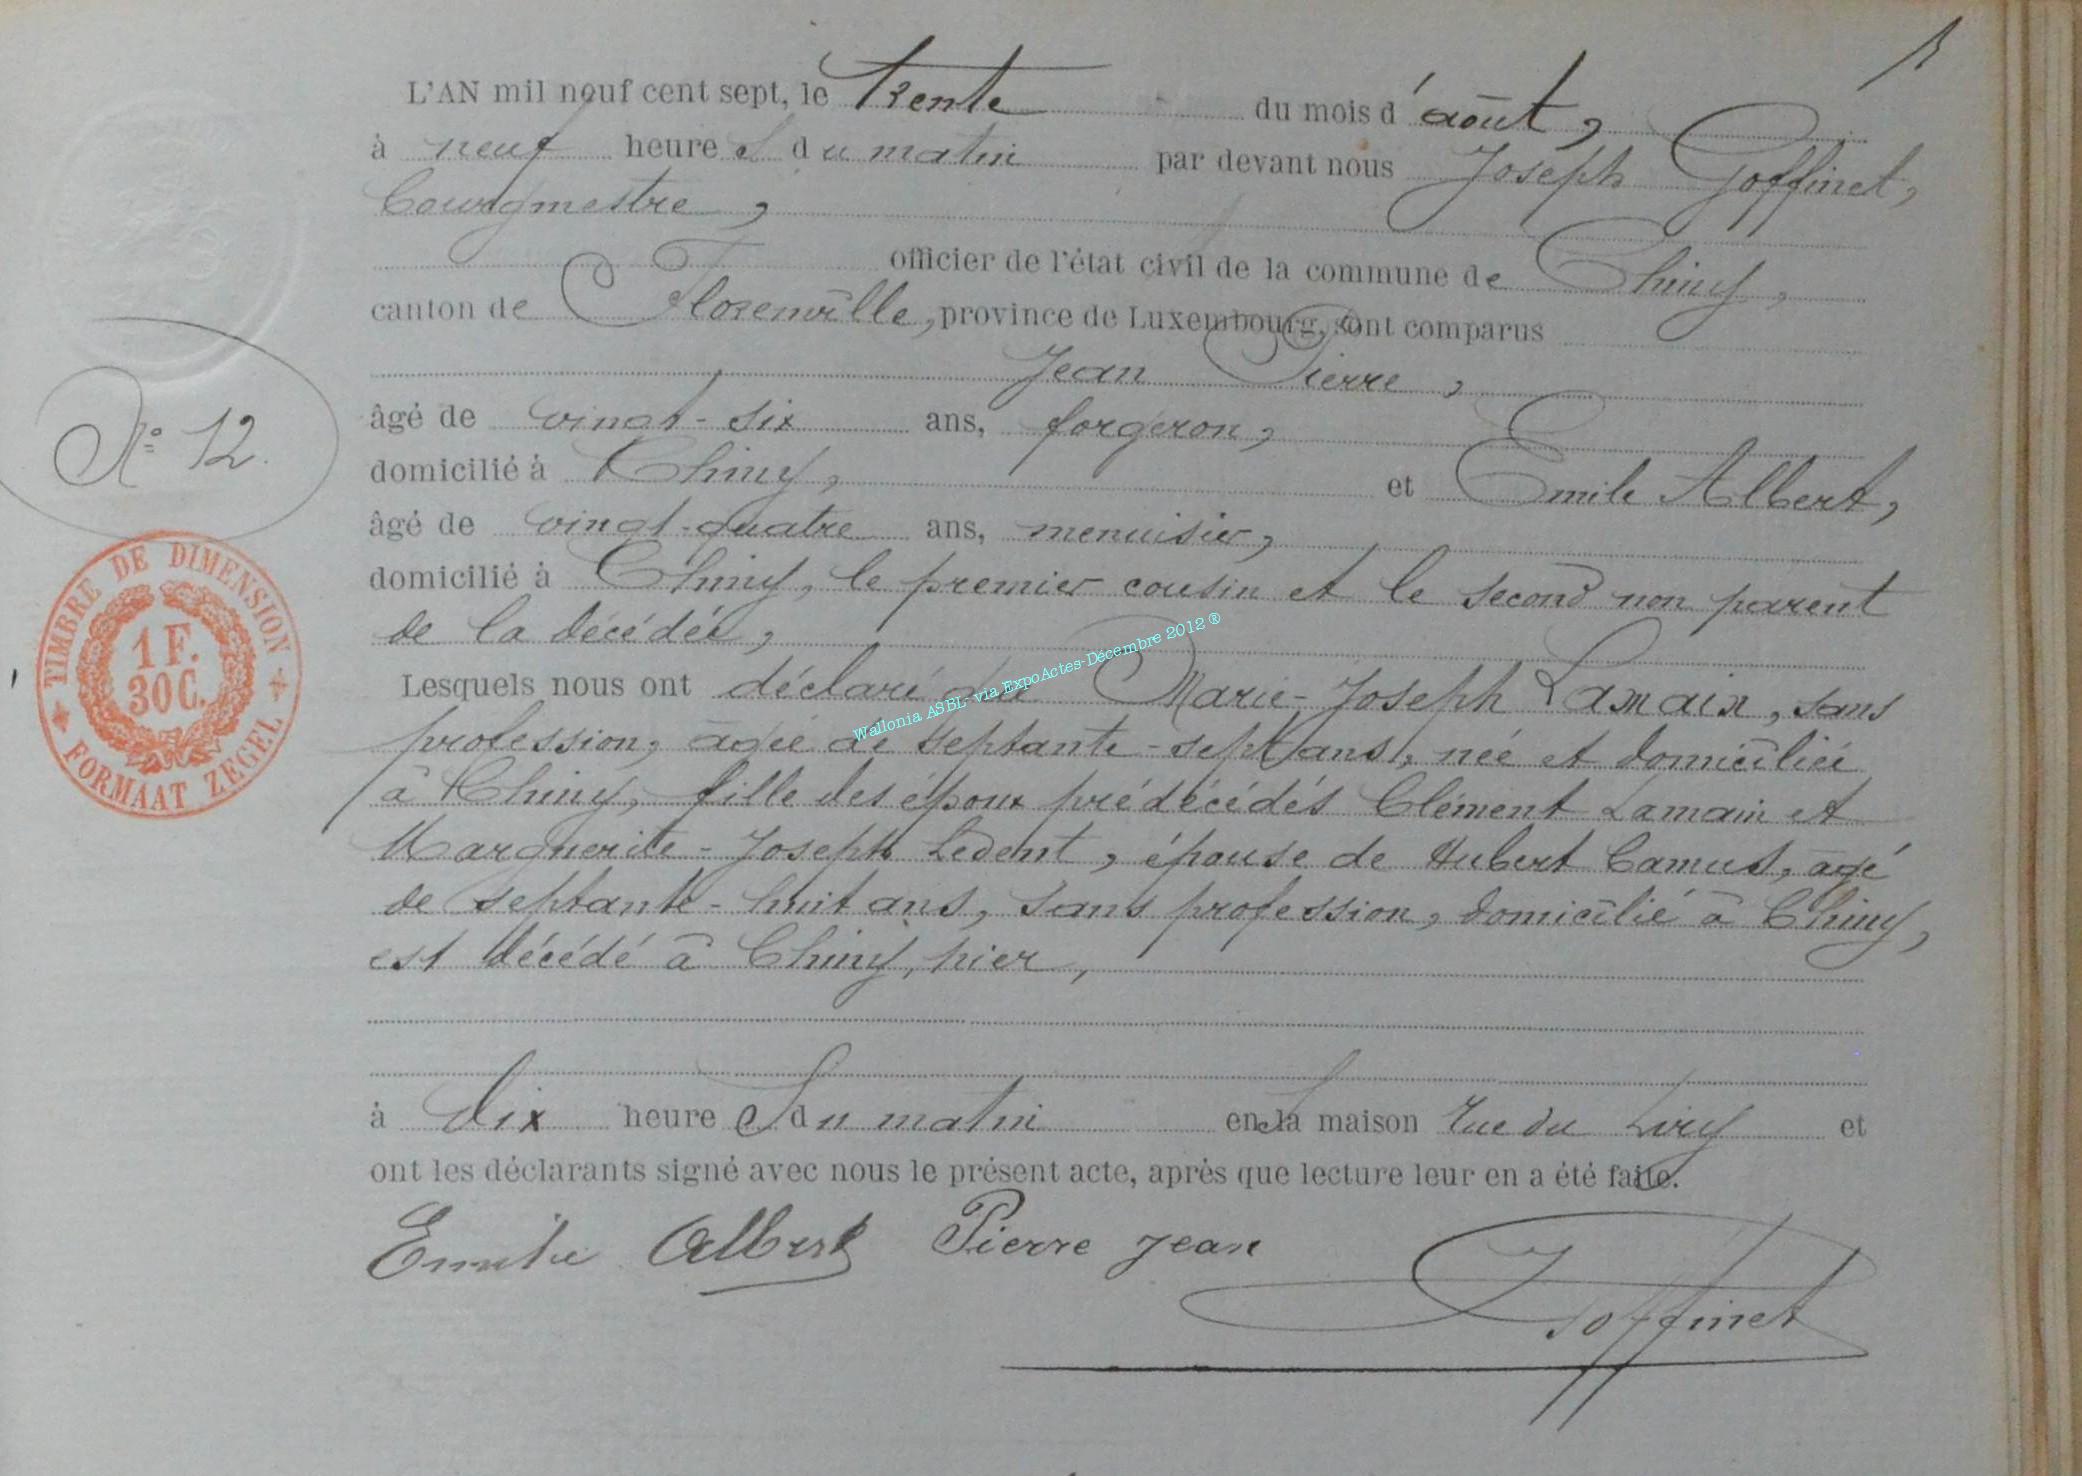 L'AN mil neuf cent sept, le trente du mois d'août,
à neuf heures du matin par devant nous Joseph Goffinet,
bourgmestre,
officier de l'état civil de la commune de Chiny,
canton de Florenville, province de Luxembourg, sont comparus
Jean Pierre,
âgé de vingt-six ans, forgeron,
domicilié à Chiny, et Emile Albert,
âgé de vingt-quatre ans, menuisier,
domicilié à Chiny, le premier cousin et le second non parent
de la décédée,
Lesquels nous ont déclaré que Marie-Joseph Lamain, sans
profession, âgée de septante-sept ans, née et domiciliée
à Chiny, fille des époux prédécédés Clément Lamain et
Marguerite-Joseph Ledent, épouse de Hubert Camus, âgé
de septante-huit ans, sans profession, domicilié à Chiny,
est décédé à Chiny, hier,
à dix heures du matin en sa maison rue du et
ont les déclarants signé avec nous le présent acte, après que lecture leur en a été faite.
Emile Albert Pierre Jean
J Goffinet
N° 12.
TIMBRE DE DIMENSION
1 F.
30 C.
FORMAAT ZEGEL
Wallonia ASBL- via ExpoActes-Décembre 2012 ®